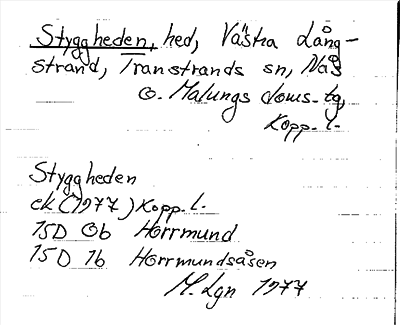 Styggheden, hed, Västra Lång-
strand, Transtrands sn, Nås
o. Malungs doms. tg,
Kopp. l.
Styggheden
ek (1977) Kopp. l.
15D 0b Horrmund
15D 1b Horrmundsåsen
M. Lgn 1977